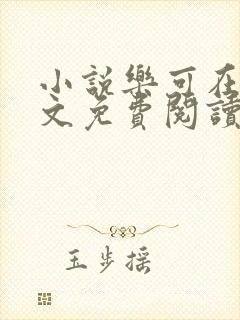 小說樂可在
文免費閱讀
玉步搖